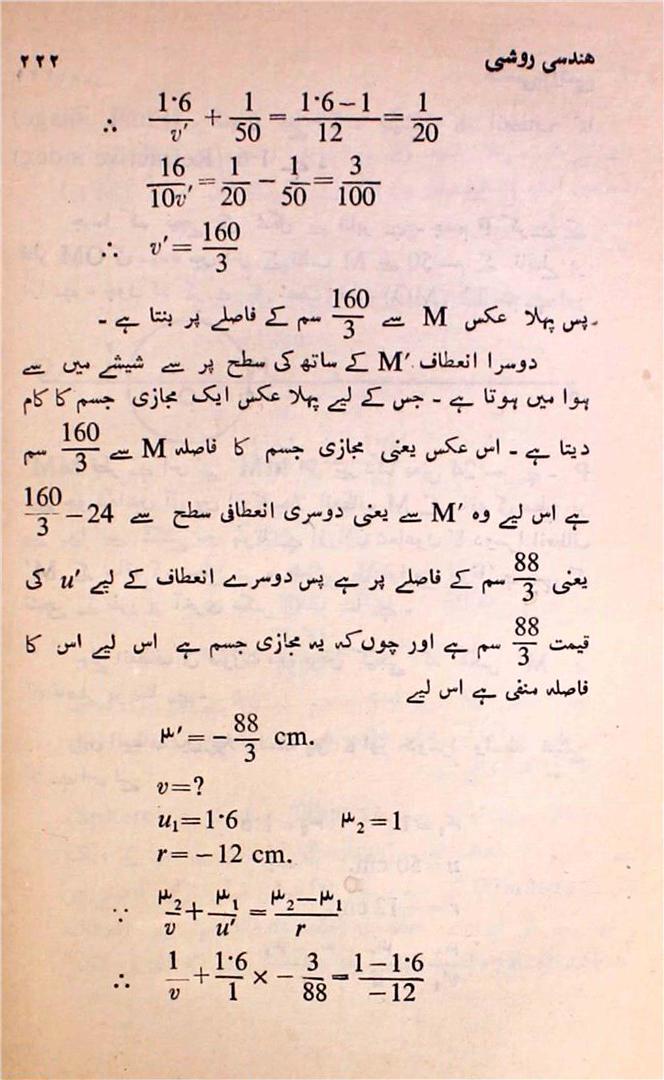 هندسی روشنی ۲۲۲
∴ 1·6/v′ + 1/50 = (1·6−1)/12 = 1/20
16/10v′ = 1/20 − 1/50 = 3/100
∴ v′ = 160/3
پس پہلا عکس M سے 160/3 سم کے فاصلے پر بنتا ہے ۔
دوسرا انعطاف M′ کے ساتھ کی سطح پر سے شیشے میں سے
ہوا میں ہوتا ہے ۔ جس کے لیے پہلا عکس ایک مجازی جسم کا کام
دیتا ہے ۔ اس عکس یعنی مجازی جسم کا فاصلہ M سے 160/3 سم
ہے اس لیے وہ M′ سے یعنی دوسری انعطافی سطح سے 160/3 − 24
یعنی 88/3 سم کے فاصلے پر ہے پس دوسرے انعطاف کے لیے u′ کی
قیمت 88/3 سم ہے اور چوں کہ یہ مجازی جسم ہے اس لیے اس کا
فاصلہ منفی ہے اس لیے
μ′ = − 88/3 cm.
v = ?
u₁ = 1·6 μ₂ = 1
r = − 12 cm.
∵ μ₂/v + μ₁/u′ = (μ₂−μ₁)/r
∴ 1/v + 1·6/1 × − 3/88 = (1−1·6)/−12